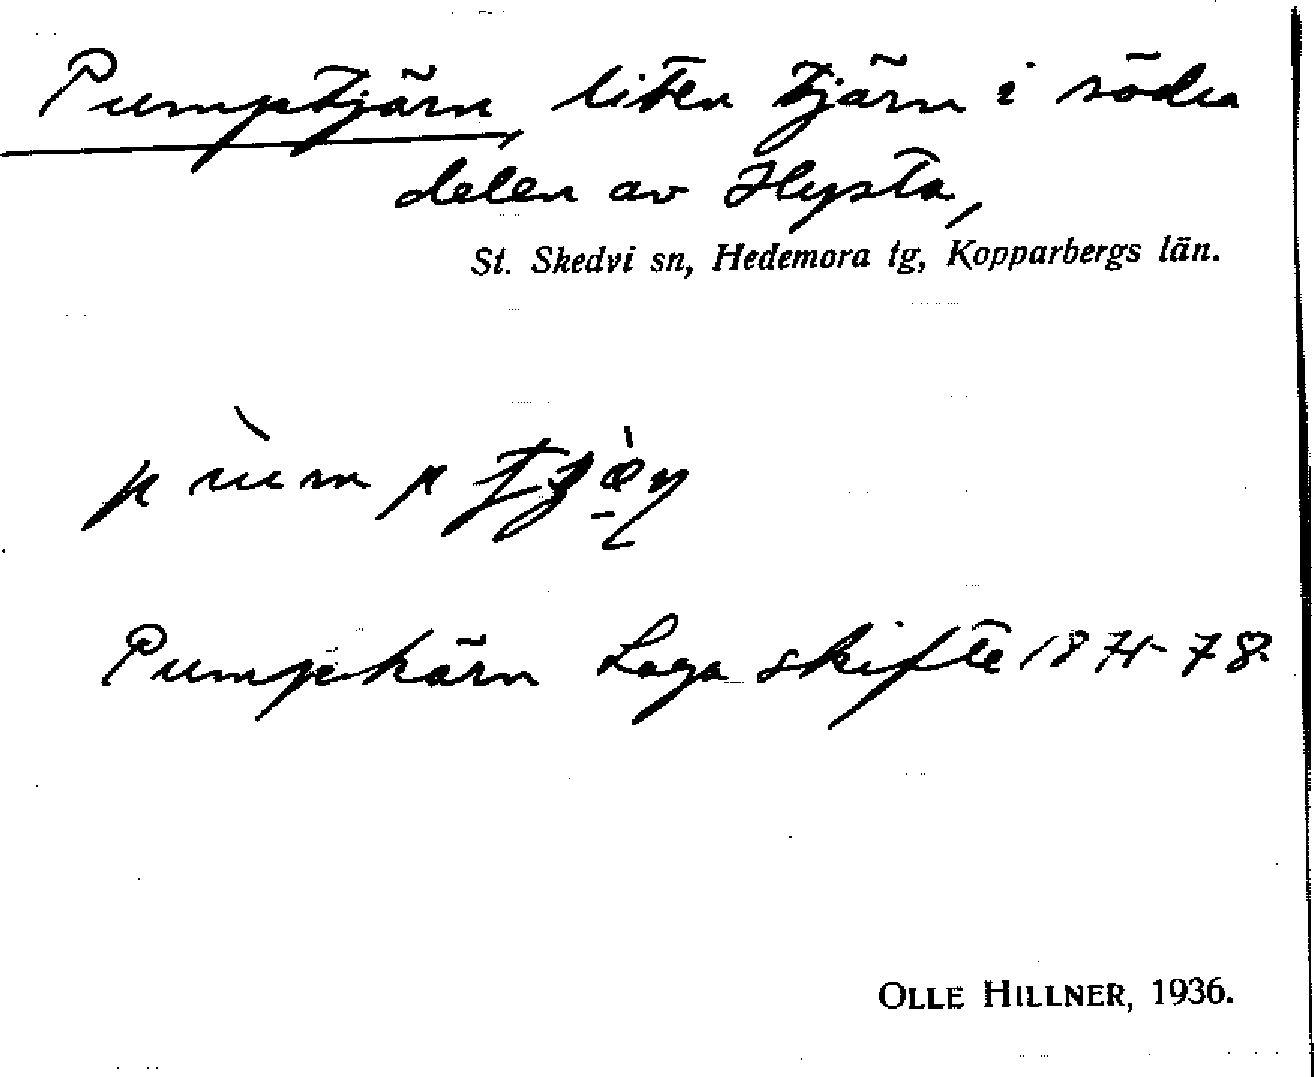 Pumptjärn, liten tjärn i södra
delen av Hysta,
St. Skedvi sn, Hedemora tg, Kopparbergs län.
Pumpkärn Laga skifte 1871-78
OLLE HILLNER, 1936.